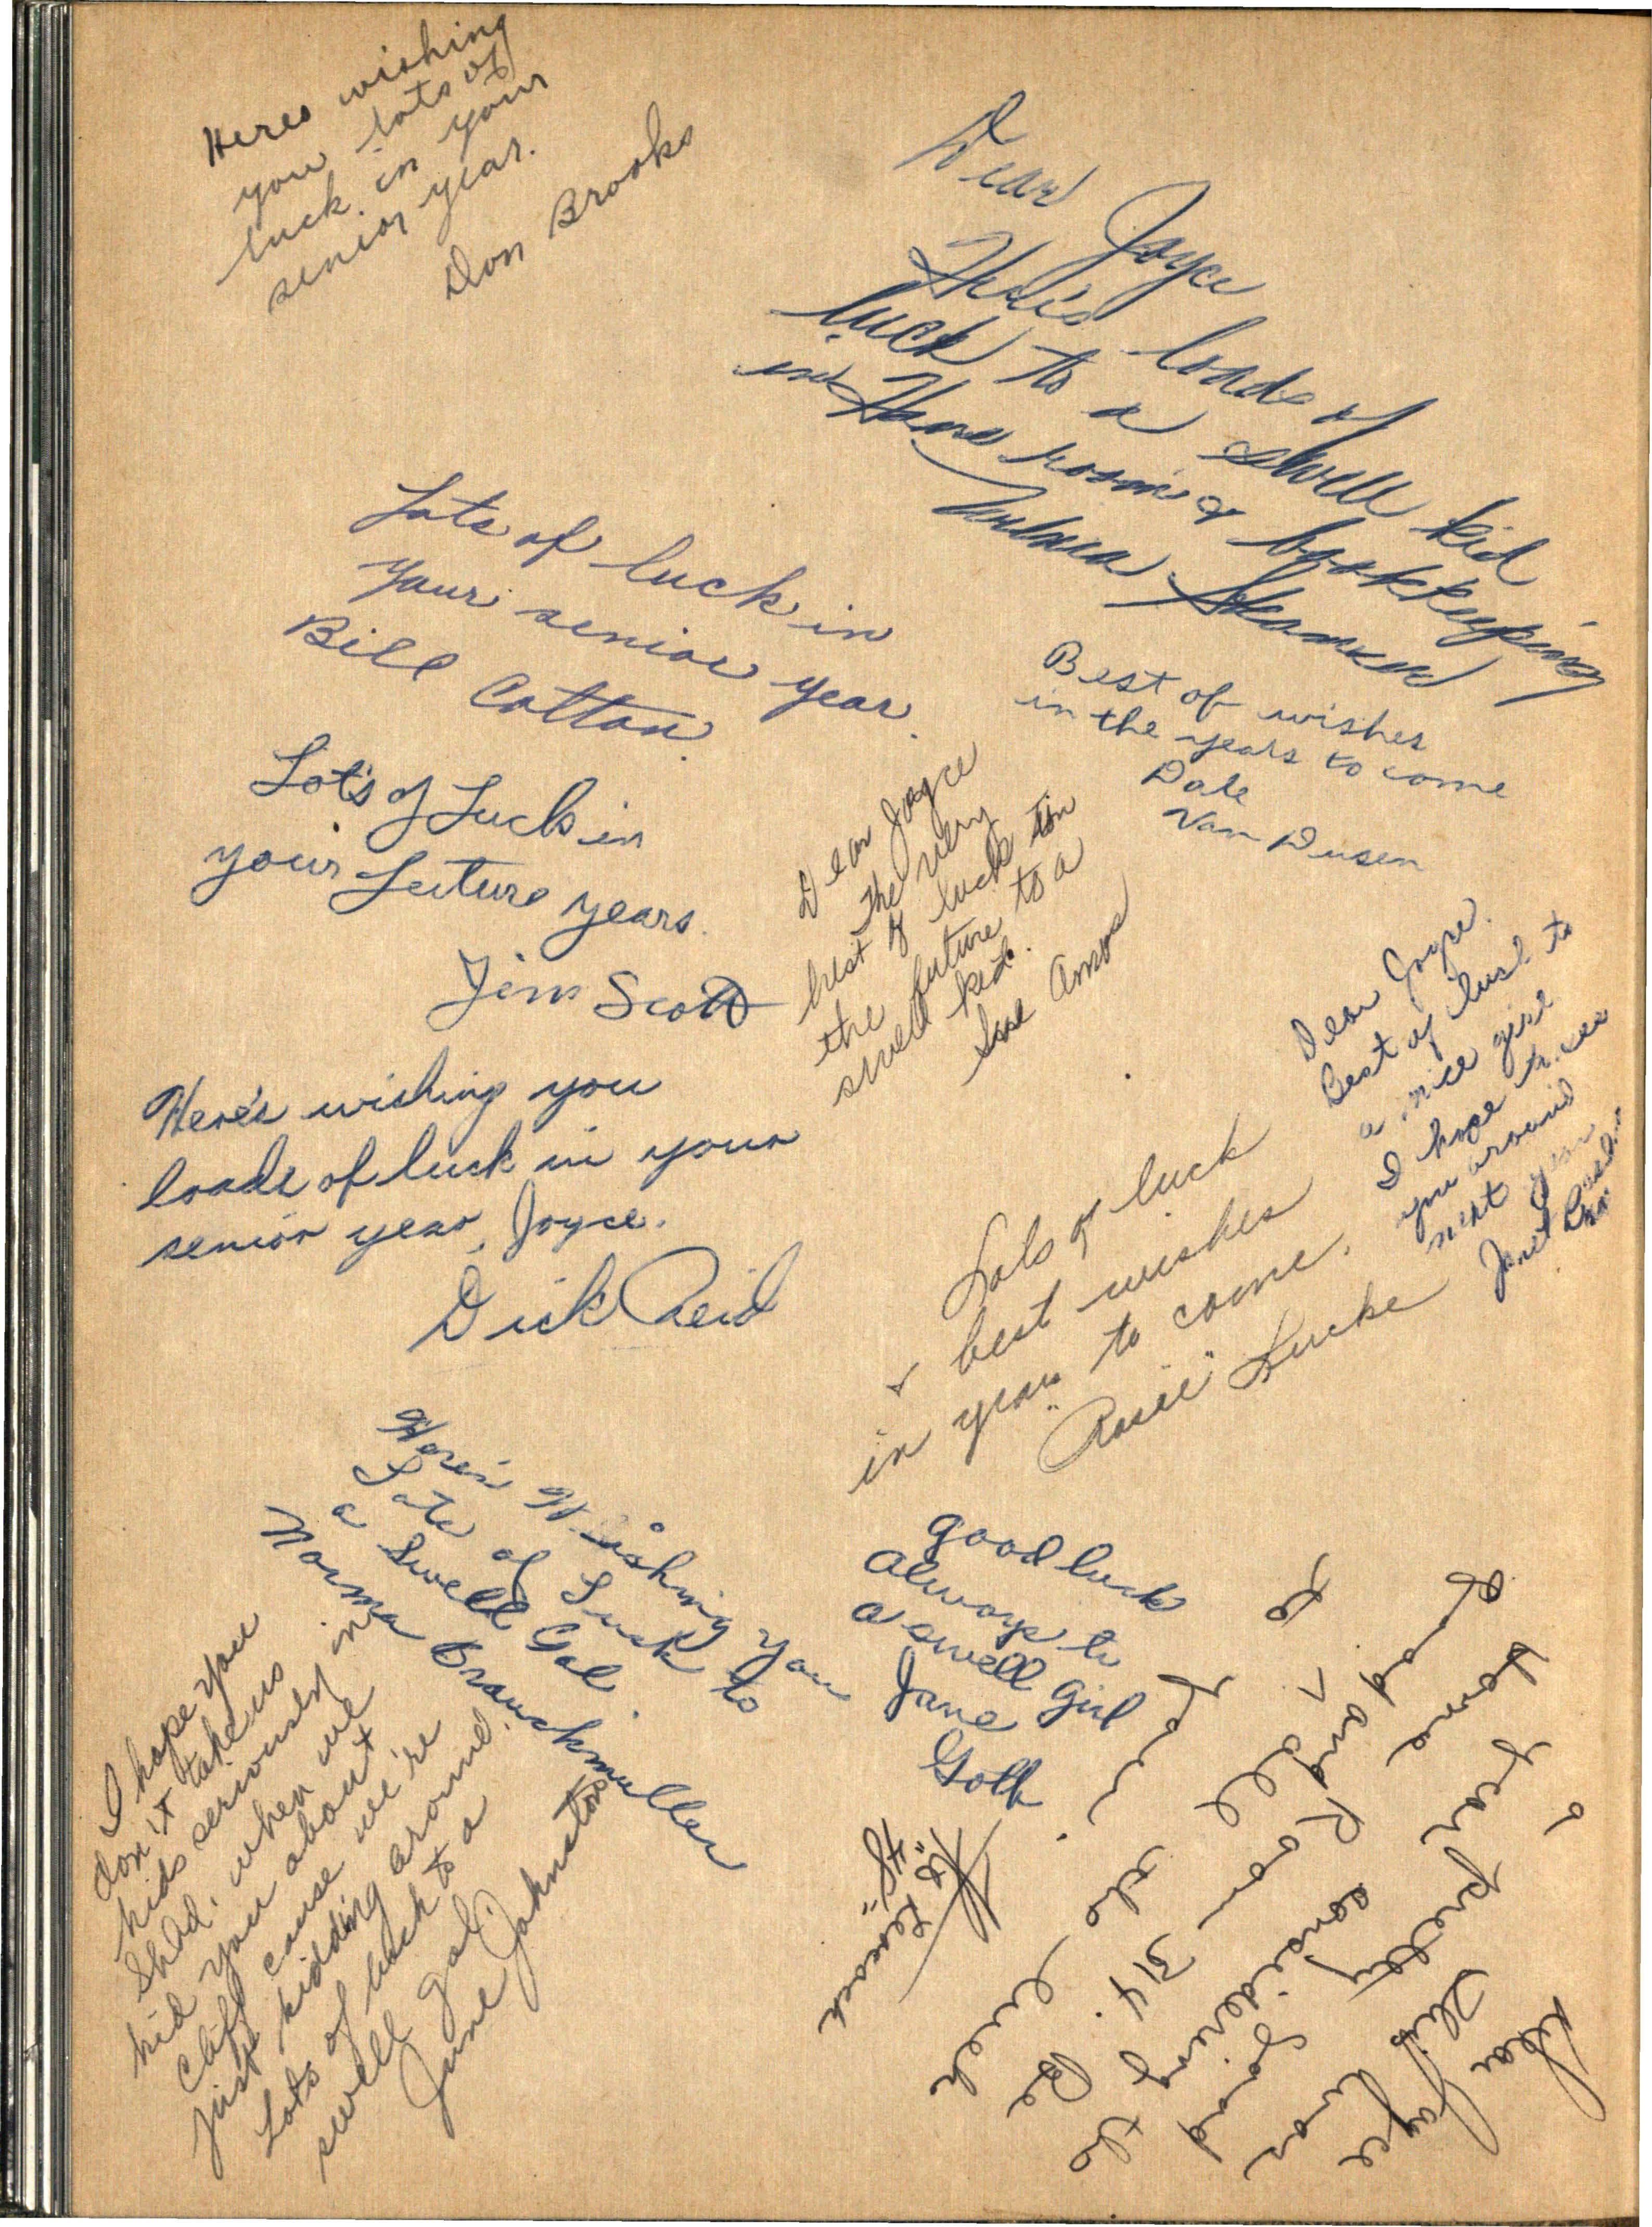 Heres wishing
you lots of
luck in your
senior year.
Don Brooks
Dear Joyce
Here's loads of
luck to a swell kid
in Home room & bookkeeping
Best of wishes
in the years to come
Dale
Van Dusen
Lots of luck in
your senior year.
Bill Cotton
Lot's of Luck in
your future years.
Jim Scott
Dear Joyce
The very
best of luck in
the future to a
swell kid.
Sue Amos
Dear Joyce.
Best of luck to
a nice girl
I hope to see
you around
next year
Janet
Here's wishing you
loads of luck in your
senior year, Joyce.
Dick Reid
Lots of luck
& best wishes
in years to come.
"Rosie" Lucke
Here's Wishing you
Lots of Luck to
a Swell Gal.
Norma Brauckmuller
good luck
always to
a swell girl
Jane
Golb
I hope you
don't take us
kids seriously in
Shld. when we
kid you about
Cliff cause we're
just kidding around.
Lots of luck to a
swell gal
June Johnston
Dear Joyce
This was
a pretty
year considering the
Home Room 314.
Good
and all the luck
to you.